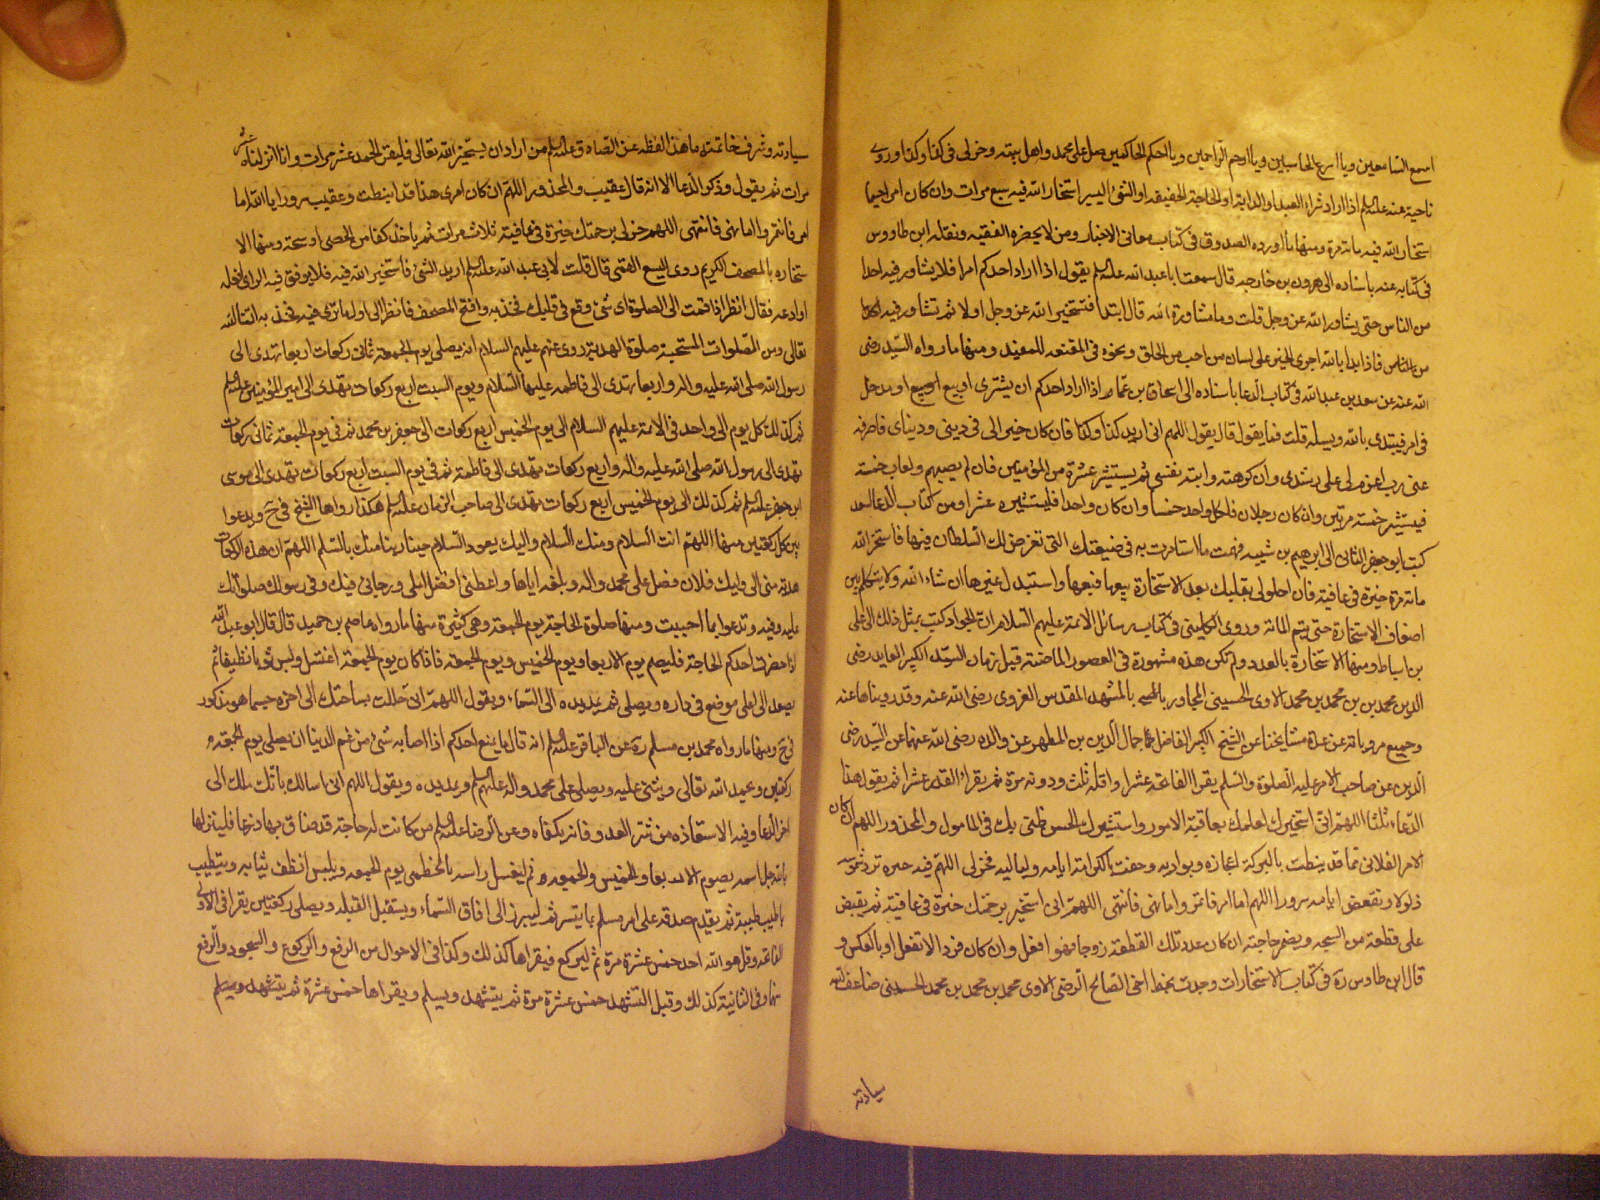 اسمع السامعين ويا اسرع الحاسبين ويا ارحم الراحمين ويا احكم الحاكمين صل على محمد واهل بيته وخر لي في كذا وكذا وروى
ناجية عنه عليه السلم اذا اراد شراء العبد او الدابة او الحاجة الخفيفة او الشئ اليسير استخار الله فيه سبع مرات وان كان امرا جسيما
استخار الله فيه مائة مرة ومنها ما اورده الصدوق في كتابه معاني الاخبار ومن لا يحضره الفقيه ونقله ابن طاووس
في كتابه عنه باسناده الى هرون بن خارجه قال سمعت ابا عبد الله عليه السلم يقول اذا اراد احدكم امرا فلا يشاور فيه احدا
من الناس حتى يشاور الله عز وجل قلت وما مشاورة الله قال يبتدا فيستخير الله عز وجل اولا ثم تشاور فيه
من الناس فاذا بدا بالله اجرى الخير على لسان من احب من الخلق ونحوه في المقنعه للمفيد ومنها ما رواه السيد رضي
الله عنه عن سعد بن عبد الله في كتاب الدعا باسناده الى اسحاق بن عمار اذا اراد احدكم ان يشترى او يبيع او يدخل
في امر فيبتدى بالله ويسله قلت فما يقول قال يقول اللهم اني اريد كذا وكذا فان كان خيرا لي في ديني ودنياي فاصرفه
عني رب اعزم لي على رشدي وان كرهته وابته نفسي ثم يستشير عشرة من المؤمنين فان لم يصبهم واصاب خمسة
فيستشير خمسة مرتين وان كان رجلان فلكل واحد خمسا وان كان واحدا فليستشيره عشرا ومن كتاب الدعا لسعد
كتب ابو جعفر الثاني الى ابرهيم بن شيبه فهمت ما استامرت به في ضيعتك التي تعرض لك السلطان فيها فاستخر الله
مائة مرة خيرة في عافية فان احلولى بقلبك بعد الاستخارة بيعها فبعها واستبدل غيرها ان شاء الله ولا يتكلم بين
اضعاف الاستخارة حتى يتم المائة وروى الكليني في كتاب رسائل الائمة عليهم السلام ان الجواد كتب بمثل ذلك الى علي
بن اسباط ومنها الاستخارة بالعدد ولم تكن هذه مشهورة في العصور الماضية قبل زمان السيد الكبير العابد رضي
الدين محمد بن محمد بن محمد الاوى الحسيني المجاور بالمشهد المقدس الغروي رضي الله عنه وقد رويناها عنه
وجميع مروياته عن عدة مشايخنا عن الشيخ الكبير الفاضل جمال الدين بن المطهر عن والده رضي الله عنهما عن السيد رضى
الدين عن صاحب الامر عليه الصلوة والسلم يقرا الفاتحة عشرا واقله ثلث ودونه مرة ثم يقراء القدر عشرا ثم يقول هذا
الدعاء ثلثا اللهم اني استخيرك لعلمك بعاقبة الامور واستشيرك لحسن ظني بك في المامول والمحذور اللهم ان كان
الامر الفلاني مما قد نيطت بالبركة اعجازه وبواديه وحفت بالكرامة ايامه ولياليه فخر لي اللهم فيه خيره ترد شموسه
ذلولا وتقعض ايامه سرورا اللهم اما امر فائتمر واما نهي فانتهى اللهم اني استخير برحمتك خيرة في عافية ثم يقبض
على قطعة من السبحه ويضمر حاجته ان كان عدد تلك القطعة زوجا فهو افعل وان كان فردا لا تفعل او بالعكس و
قال ابن طاوس ره في كتاب الاستخارات وجدت بخط اخي الصالح الرضي الاوى محمد بن محمد بن محمد الحسيني ضاعف الله
سيادته
سيادته وشرف خاتمته ما هذا لفظه عن الصادق عليه السلم من اراد ان يستخير الله تعالى فليقرا الحمد عشر مرات وانا انزلناه عشر
مرات ثم يقول وذكر الدعا الا انه قال عقيب والمحذور اللهم ان كان امري هذا قد نيطت وعقيب سرورا يا الله اما
امر فائتمر واما نهي فانتهى اللهم خر لي برحمتك خيرة في عافية ثلاث مرات ثم ياخذ كفا من الحصى او سبحة ومنها الا
ستخاره بالمصحف الكريم روى اليسع القمي قال قلت لابي عبد الله عليه السلم اريد الشئ فاستخير الله فيه فلا يوفق فيه الراى افعله
او ادعه فقال انظر اذا قمت الى الصلوة اى شئ وقع في قلبك فخذ به وافتح المصحف فانظر الى اول ما ترى فيه فخذ به انشا الله
تعالى ومن الصلوات المستحبة صلوة الهدية روى عنهم عليهم السلام انه يصلي يوم الجمعة ثماني ركعات اربعا تهدى الى
رسول الله صلى الله عليه واله واربعا تهدى الى فاطمه عليها السلام ويوم السبت اربع ركعات تهدى الى امير المؤمنين عليه السلم
ثم كذلك كل يوم الى واحد في الائمة عليهم السلام الى يوم الخميس اربع ركعات الى جعفر بن محمد ثم في يوم الجمعة ثماني ركعات
تهدى الى رسول الله صلى الله عليه واله واربع ركعات تهدى الى فاطمة ثم في يوم السبت اربع ركعات تهدى الى موسى
ابن جعفر عليه السلم ثم كذلك الى يوم الخميس اربع ركعات تهدى الى صاحب الزمان عليه السلم هكذا رواها الشيخ في ويدعوا
بين كل ركعتين منها اللهم انت السلام ومنك السلام واليك يعود السلام حينا ربنا منك بالسلم اللهم ان هذه الركعات
هدية مني الى وليك فلان فصل على محمد واله وبلغه اياها واعطني افضل املي ورجائي فيك وفي رسولك صلواتك
عليه وفيه وتدعوا بما احببت ومنها صلوة الحاجة يوم الجمعة وهي كثيرة منها ما رواه عاصم بن حميد قال قال ابو عبد الله
اذا حضرت احدكم الحاجة فليصم يوم الاربعا ويوم الخميس ويوم الجمعة فاذا كان يوم الجمعة اغتسل ولبس ثوبا نظيفا ثم
يصعد الى اعلى موضع في داره ويصلي ثم يمد يده الى السماء ويقول اللهم اني حللت بساحتك الى اخره حسبما هو مذكور
في ومنها ما رواه محمد بن مسلم ره عن الباقر عليه السلم انه قال ما يمنع احدكم اذا اصابه شئ من غم الدنيا ان يصلي يوم الجمعه
ركعتين ويحمد الله تعالى ويثني عليه ويصلي على محمد واله عليهم السلم ويمد يده ويقول اللهم اني اسالك بانك ملك الى
اخر الدعا وفيه الاستعاذه من شر العدو فانه يكفاه وعن الرضا عليه السلم من كانت له حاجة قد ضاق بها ذرعا فلينزلها
بالله جل اسمه يصوم الاربعا والخميس والجمعه ثم ليغسل راسه بالخطمي يوم الجمعه ويلبس انظف ثيابه ويتطيب
باطيب طيبة ثم يقدم صدقه على امر مسلم بما يتسر ثم ليبرز الى افاق السماء ويستقبل القبله ويصلي ركعتين يقرا في الاولى
الفاتحه وقل هو الله احد خمس عشرة مرة ثم ليركع فيقراها كذلك وكذا في الاحوال من الرفع والركوع والسجود والرفع
ثم في الثانية كذلك وقبل التشهد خمس عشرة مرة ثم يتشهد ويسلم ويقراها خمس عشرة ثم يتشهد ويسلم